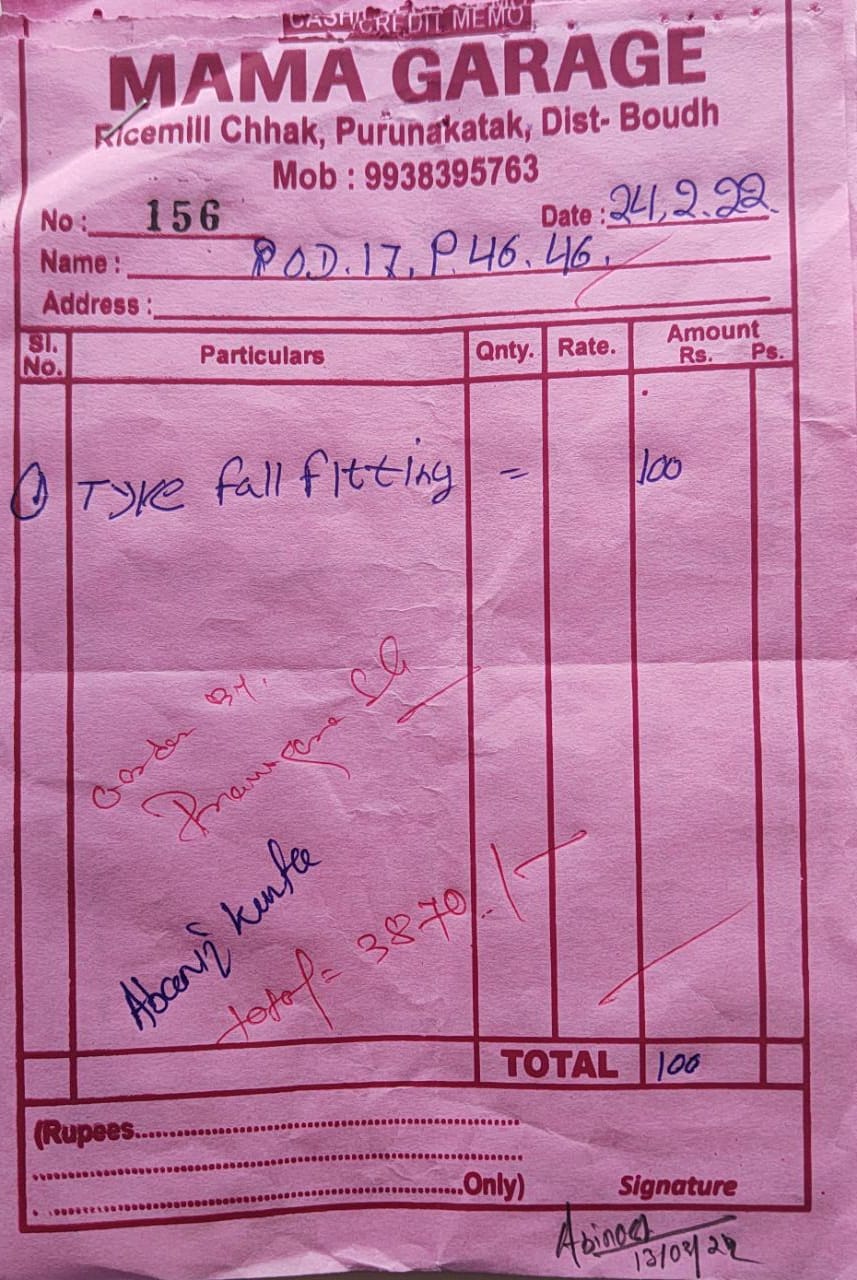 CASH/CREDIT MEMO
MAMA GARAGE
Ricemill Chhak, Purunakatak, Dist- Boudh
Mob : 9938395763
No : 156 Date : 24.2.22.
Name : O.D.17.P.46.46.
Address :
Sl. No. Particulars Qnty. Rate. Amount Rs. Ps.
1 Tyre fall fitting = 100
total = 3870./-
TOTAL 100
(Rupees
Only) Signature